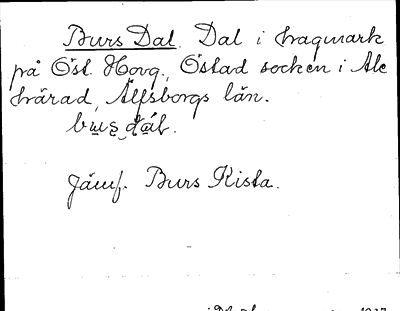 Burs Dal. Dal i hagmark
på Öst. Hovg., Östad socken i Ale
härad, Älfsborgs län.
Jämf. Burs Kista.